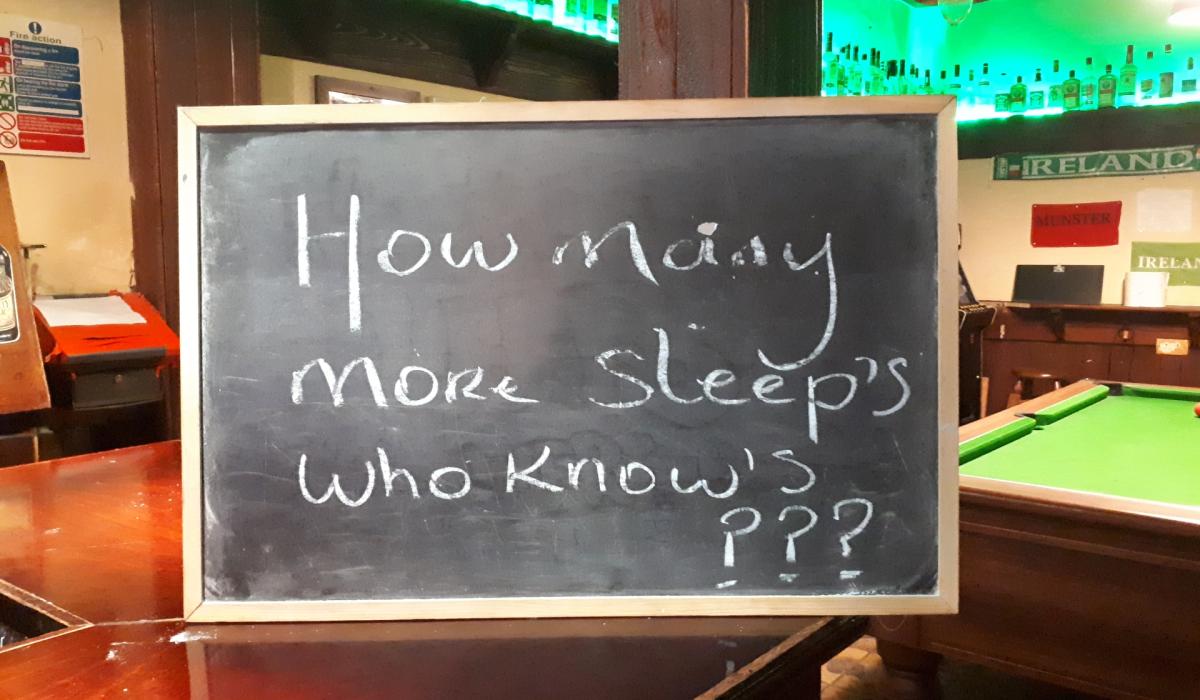 Fire action
How many
more sleep's
who know's
???
IRELAND
MUNSTER
IRELAN